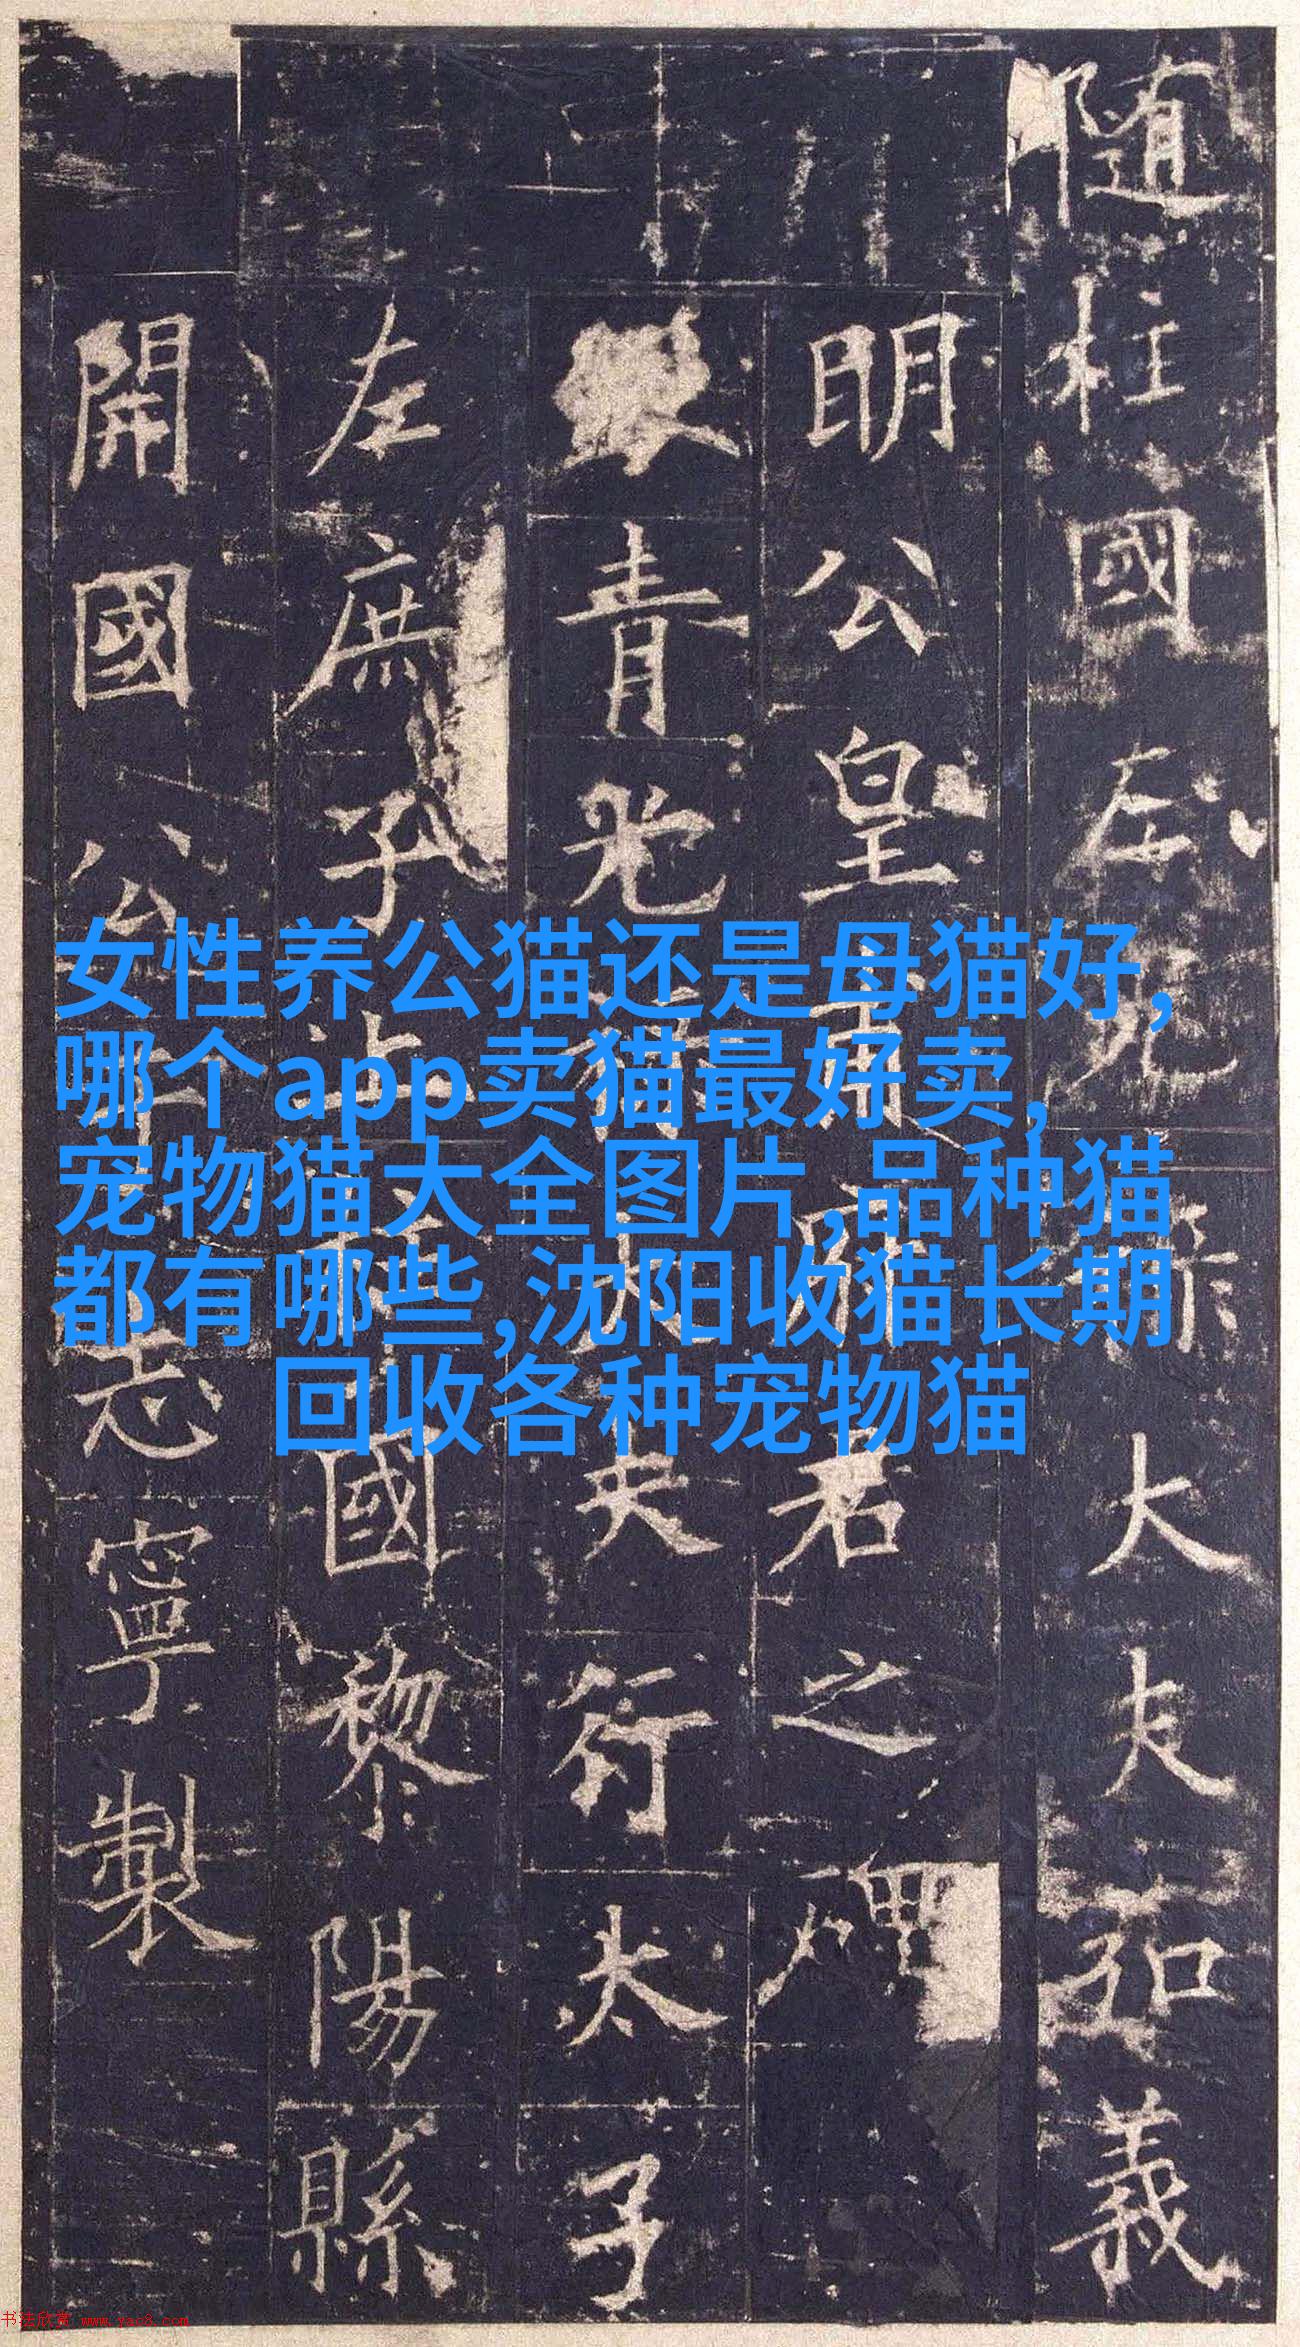 隨柱國左光祿大夫弘義
明公皇甫府君之碑
青光祿大夫行太子
左庶子上柱國黎陽縣
開國公于志寧製
女性养公猫还是母猫好,
哪个app卖猫最好卖,
宠物猫大全图片,品种猫
都有哪些,沈阳收猫长期
回收各种宠物猫
书法欣赏 www.yac8.com